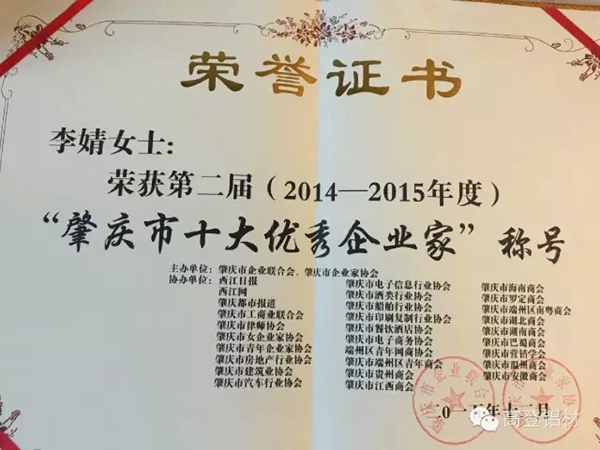 荣誉证书
李婧女士：
荣获第二届（2014—2015年度）
“肇庆市十大优秀企业家”称号
主办单位：肇庆市企业联合会、肇庆市企业家协会
协办单位：西江日报
西江网
肇庆都市报道
肇庆市工商业联合会
肇庆市律师协会
肇庆市女企业家协会
肇庆市青年企业家协会
肇庆市房地产行业协会
肇庆市建筑业协会
肇庆市汽车行业协会
肇庆市电子信息行业协会
肇庆市酒类行业协会
肇庆市船舶行业协会
肇庆市印刷复制行业协会
肇庆市餐饮酒店协会
肇庆市电子商务协会
端州区青年网商协会
肇庆市端州区青年商会
肇庆市贵州商会
肇庆市江西商会
肇庆市海南商会
肇庆市罗定商会
肇庆市端州区南粤商会
肇庆市湖北商会
肇庆市湖南商会
肇庆市巴蜀商会
肇庆市营销学会
肇庆市温州商会
肇庆市安徽商会
二〇一五年十二月
肇庆市企业联合会
肇庆市企业家协会
高登铝材